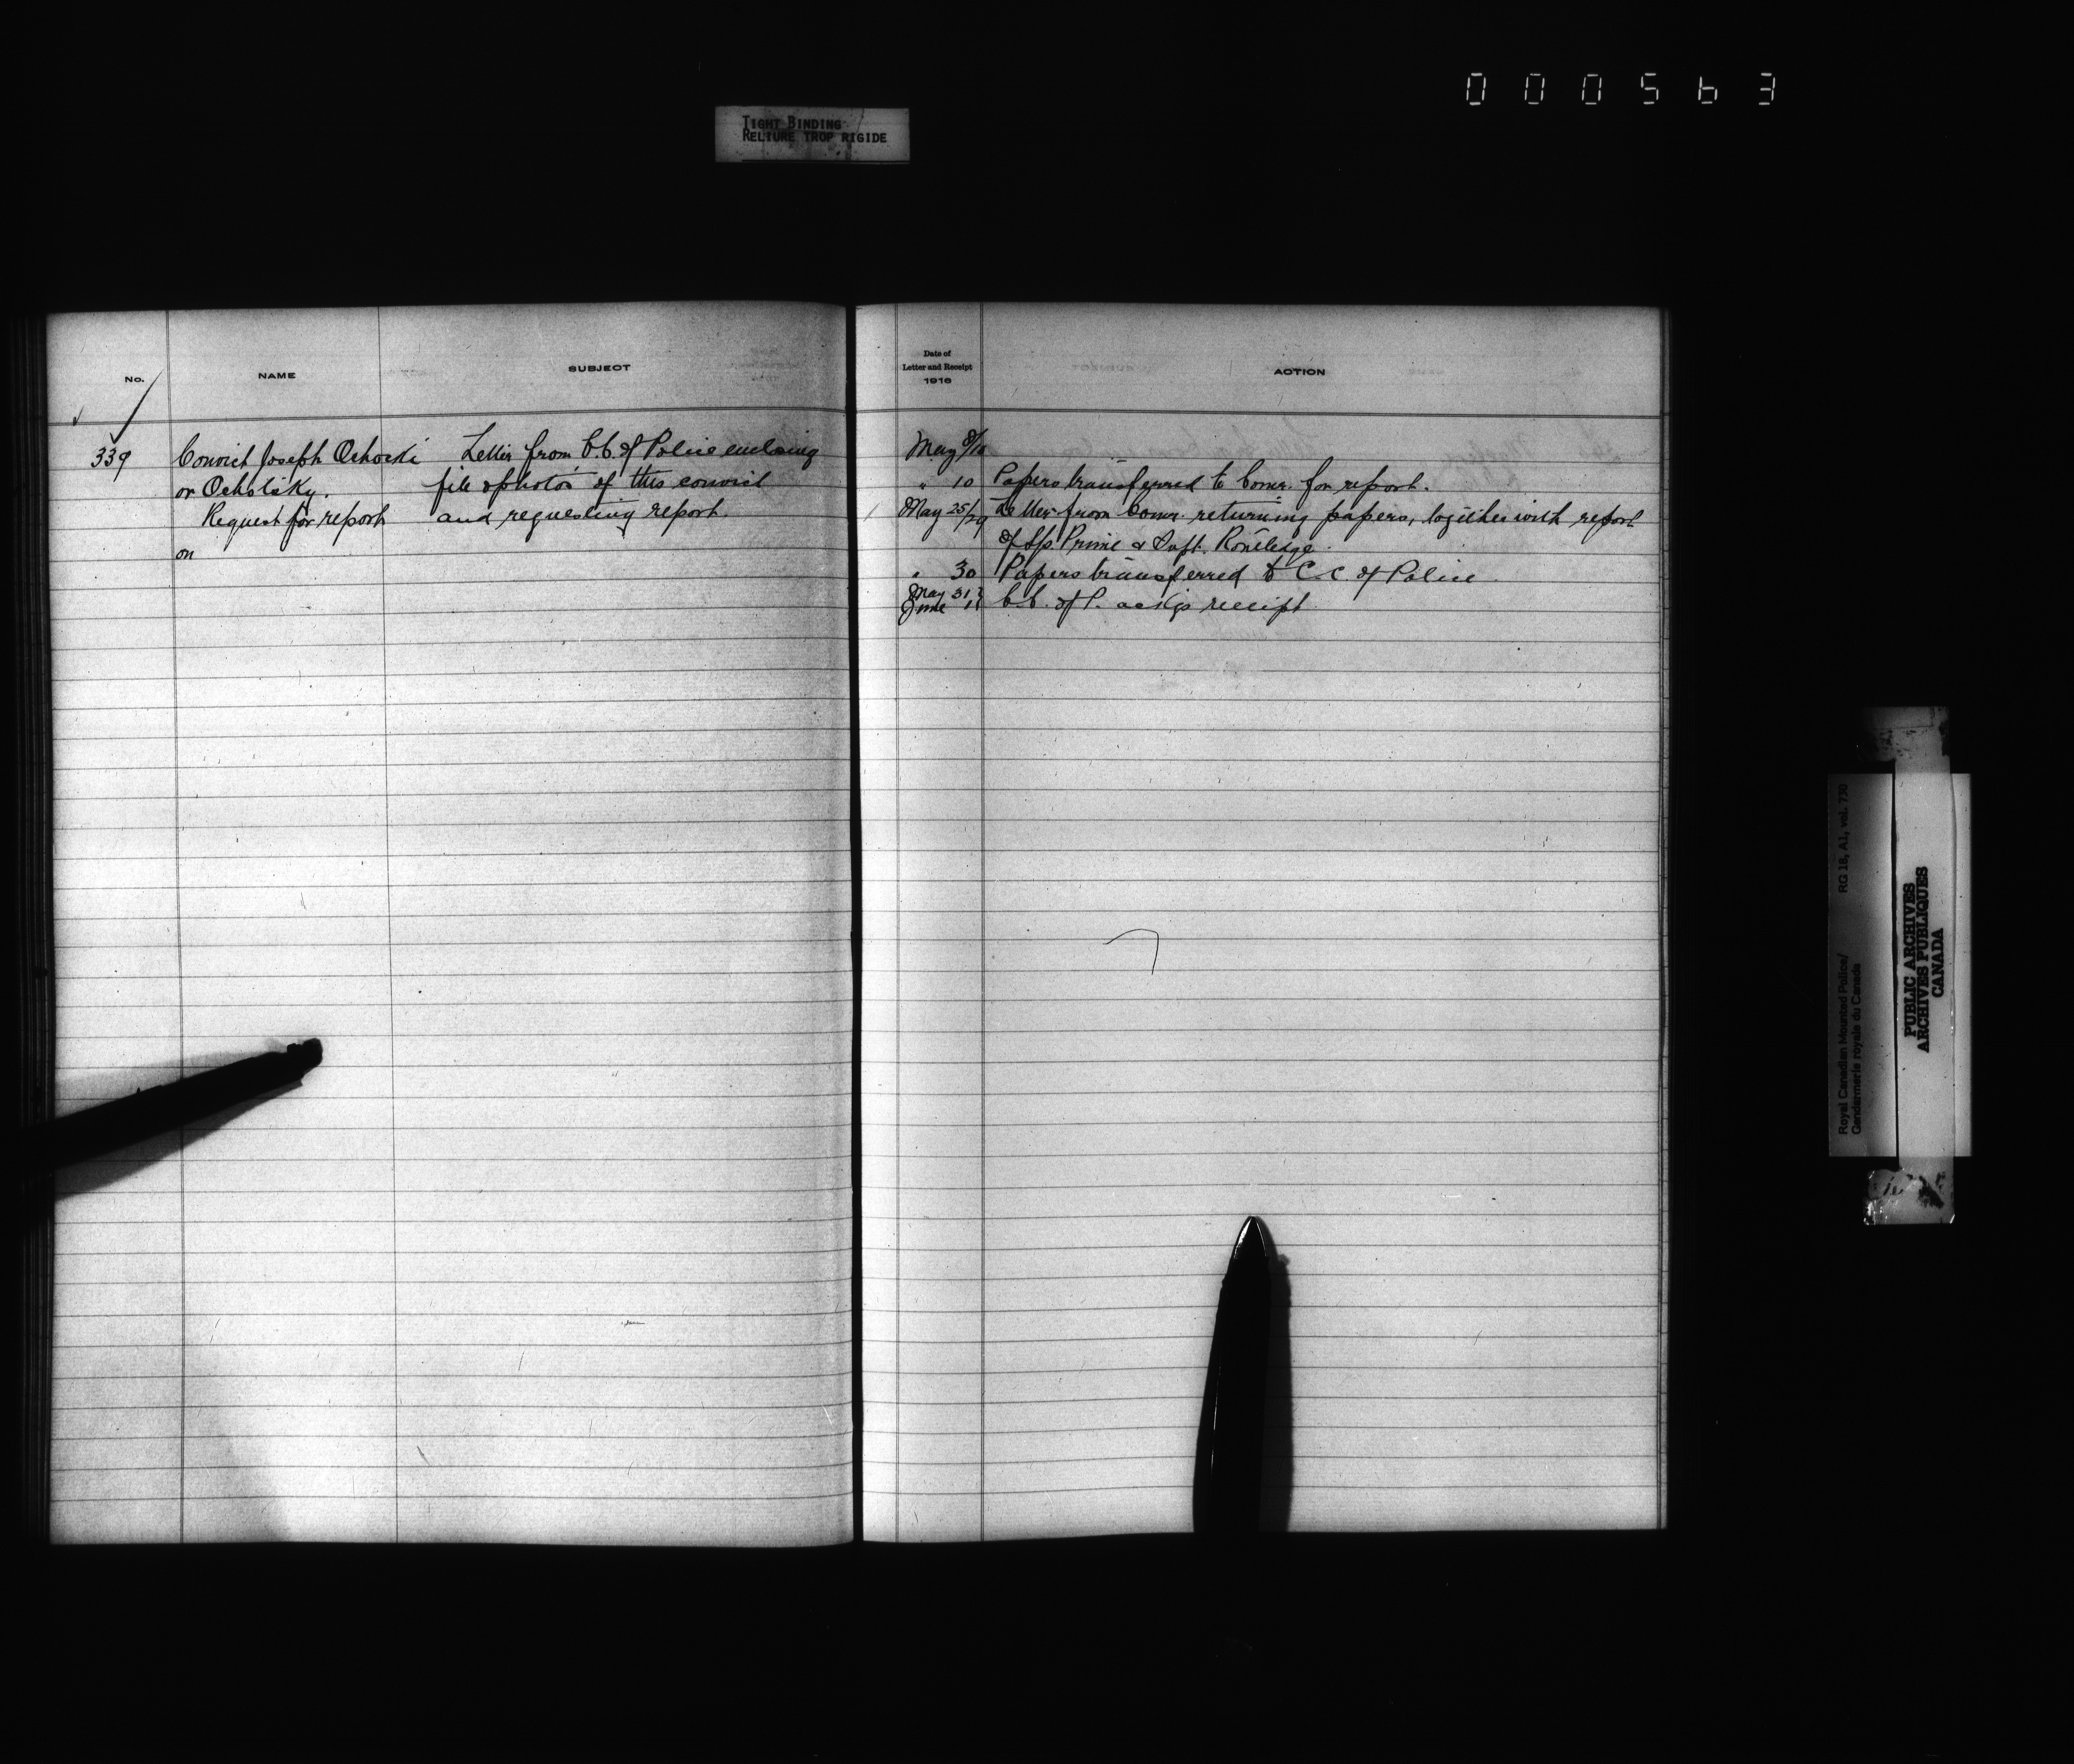 000563
TIGHT BINDING
RELIURE TROP RIGIDE
No.
NAME
SUBJECT
339
Convict Joseph Ochocki
or Ochotsky.
Request for report
on
Letter from C.C. of Police enclosing
file & photos of this convict
and requesting report.
Date of
Letter and Receipt
1916
ACTION
May 8/10
" 10 Papers transferred to Comr. for report.
May 25/29 Letter from Comr. returning papers, together with report
of Prime & Supt. Routledge.
" 30 Papers transferred to C.C. of Police
May 31
June 1 C.C. of P. ackgs receipt
Royal Canadian Mounted Police/
Gendarmerie royale du Canada
RG 18, A1, vol. 730
PUBLIC ARCHIVES
ARCHIVES PUBLIQUES
CANADA